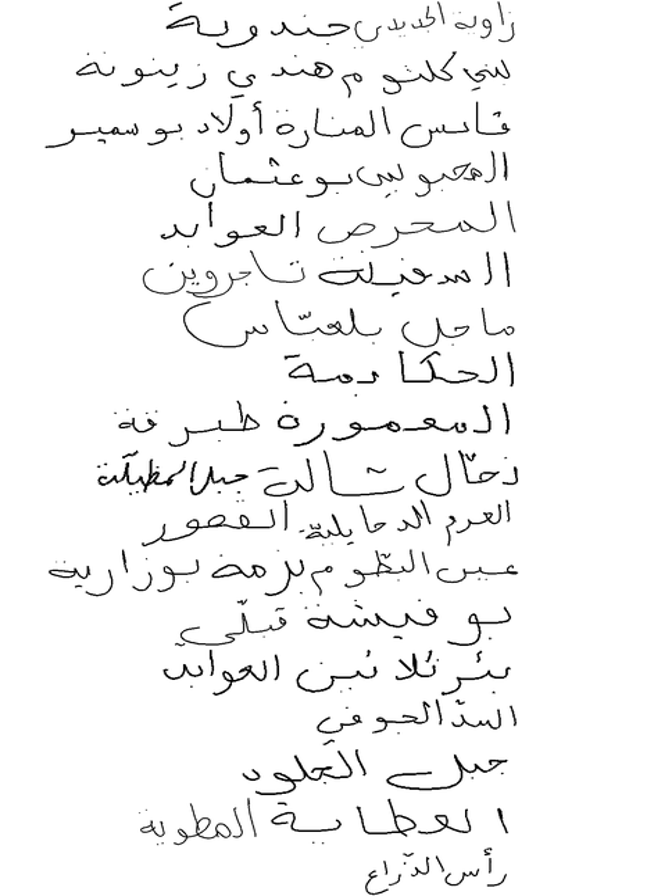 زاوية الجديدي جندوبة
بني كلثوم هندي زيتونة
قابس المنارة أولاد بو سمير
المحبوبين بوعثمان
المحرص العوابد
السعيلة تاجروين
ماجل بلعبّاس
الحكايمة
المعمورة طبرقة
زحّال شالة جبل المظيلّة
العرم الدخايليّة القصور
عين البطّوم بزمة بوزارية
بو فيشة قبلّي
بئر ثلاثين العوابد
السدّ الجوفي
جبل الجلود
العطاية المطوية
رأس الذراع